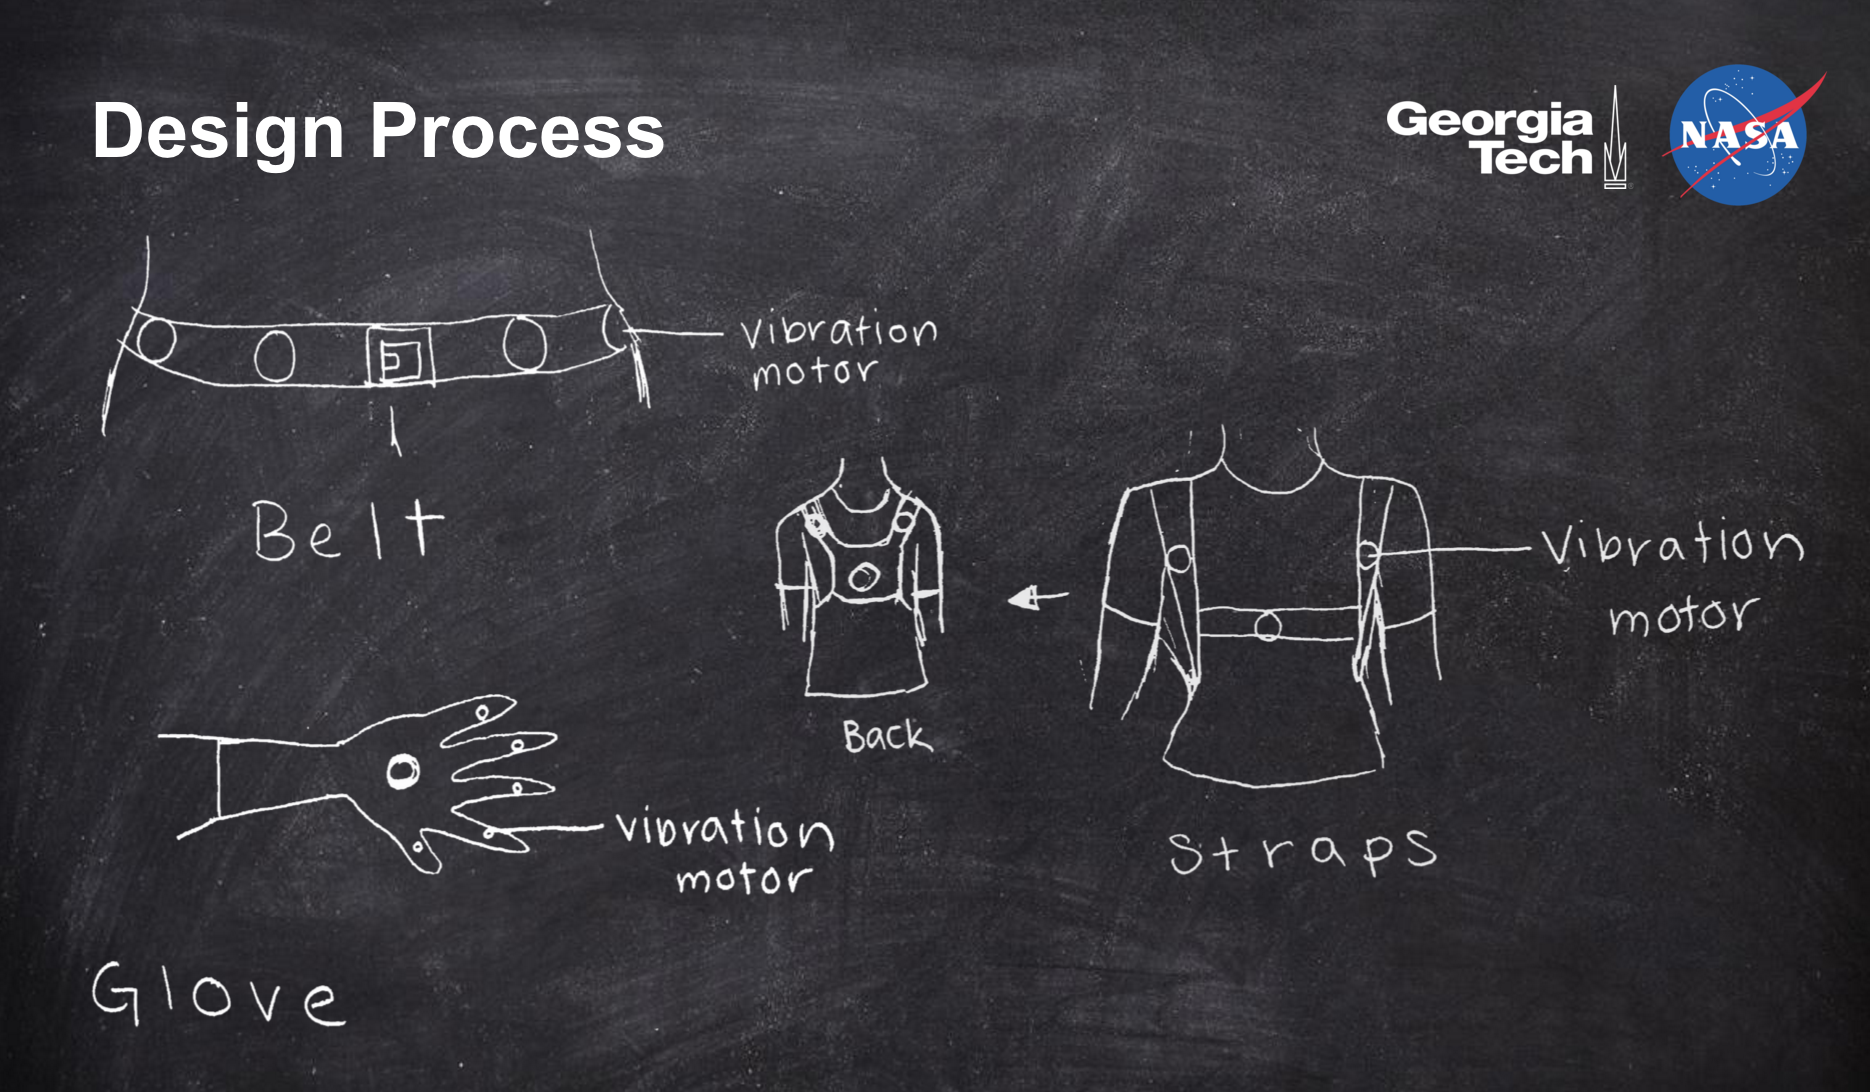 Design Process
Georgia
Tech
NASA
Vibration
motor
Belt
Vibration
motor
Back
Vibration
motor
Straps
Glove